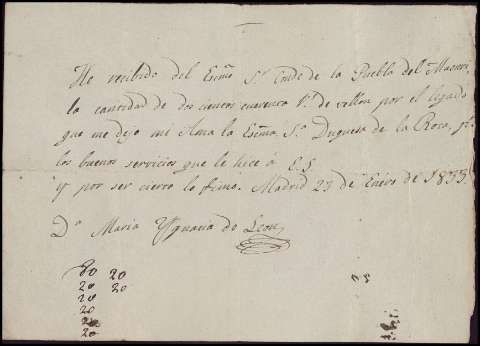 He recibido del Exmo Sr. Conde de la Puebla del Maestre,
la cantidad de dos cientos cuarenta Rs. de vellon por el legado
que me dejo mi Ama la Exma. Sra. Duquesa de la Roca, pr.
los buenos servicios que le hice á S.E.
y por ser cierto lo firmo. Madrid 23 de Enero de 1833.
Da. Maria Ygnacia de Leon
20 20
20 20
20
20
20
20